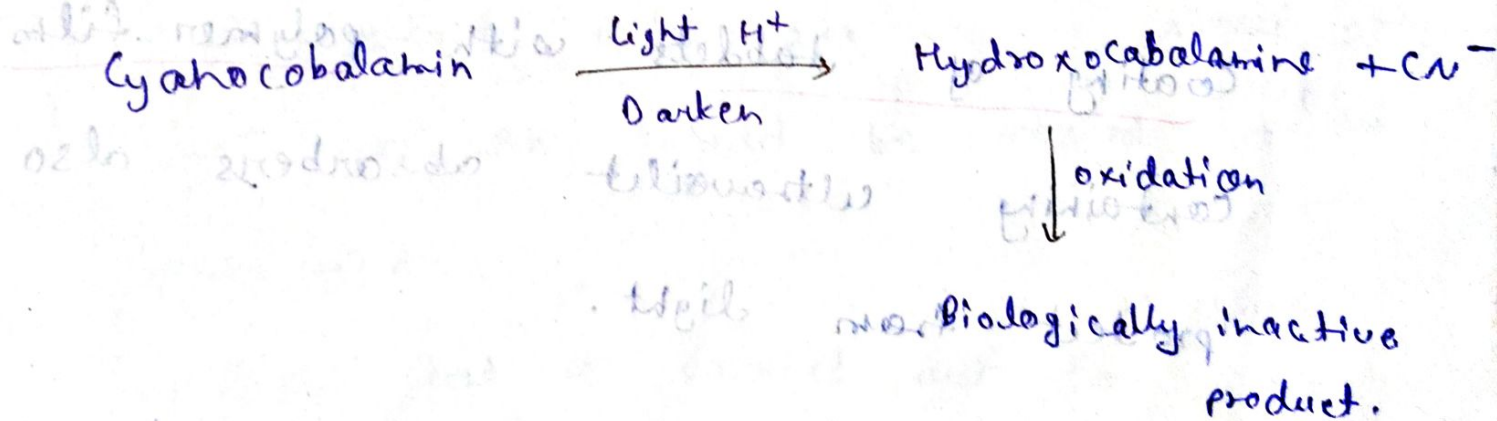 Cyanocobalamin light H+ → Hydroxocabalamine + CN-
Darken
oxidation
Biologically inactive
product.